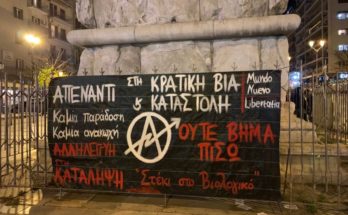 ΑΠΕΝΑΝΤΙ ΣΤΗ ΚΡΑΤΙΚΗ ΒΙΑ
& ΚΑΤΑΣΤΟΛΗ
Mundo
Nuevo
Libertatia
Καμια παράδοση
Καμια ανακωχή
ΑΛΛΗΛΕΓΓΥΗ
ΟΥΤΕ ΒΗΜΑ
ΠΙΣΩ
ΚΑΤΑΛΗΨΗ "Στέκι στο Βιολογικό"